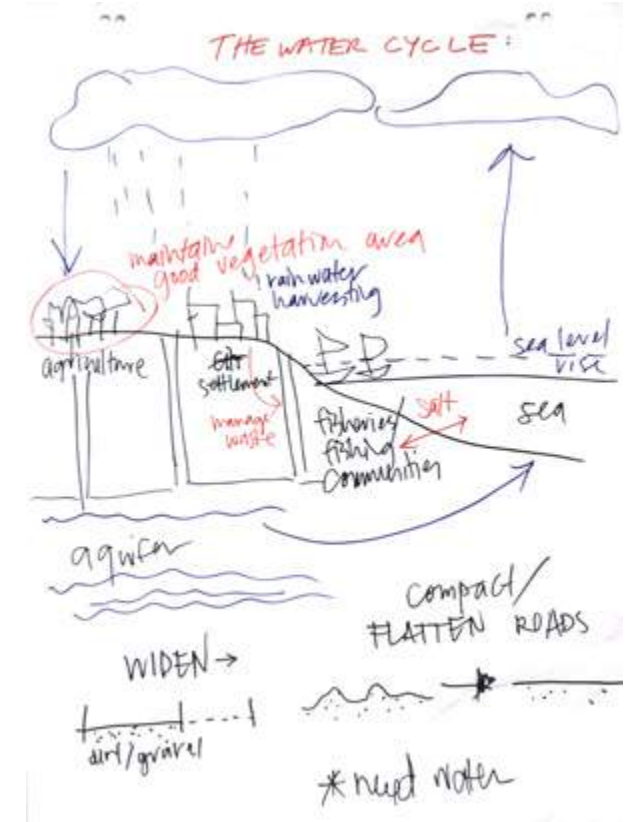 THE WATER CYCLE:
maintain
good vegetation area
rainwater
harvesting
agriculture
settlement
manage
waste
sea level
rise
fisheries/
fishing
communities
salt
sea
aquifer
compact/
FLATTEN ROADS
WIDEN →
dirt/gravel
* need water